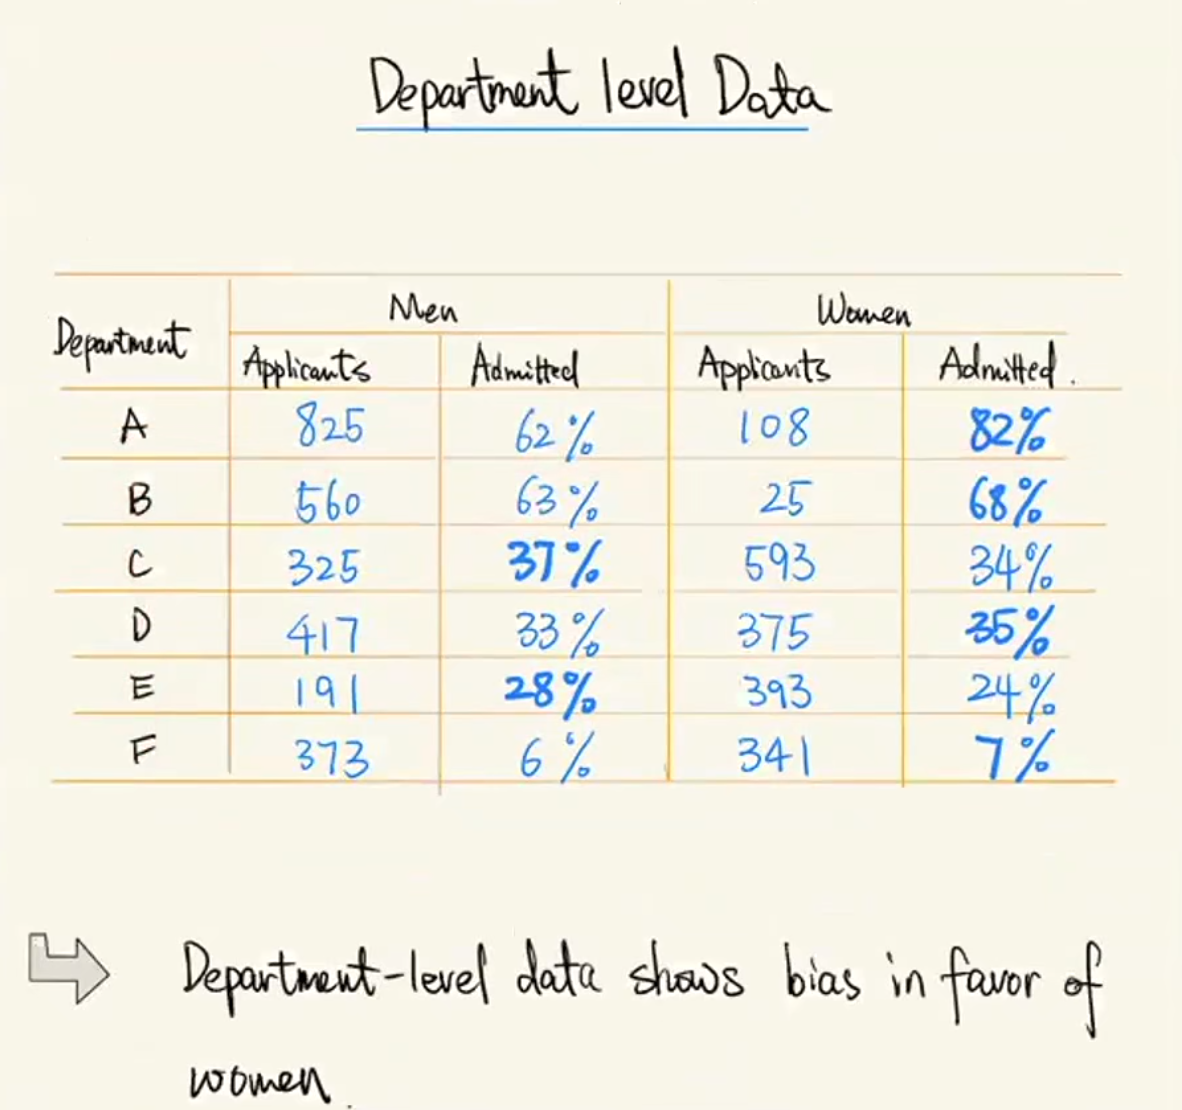 Department level Data
Men Women
Department Applicants Admitted Applicants Admitted.
A 825 62% 108 82%
B 560 63% 25 68%
C 325 37% 593 34%
D 417 33% 375 35%
E 191 28% 393 24%
F 373 6% 341 7%
Department-level data shows bias in favor of
women.